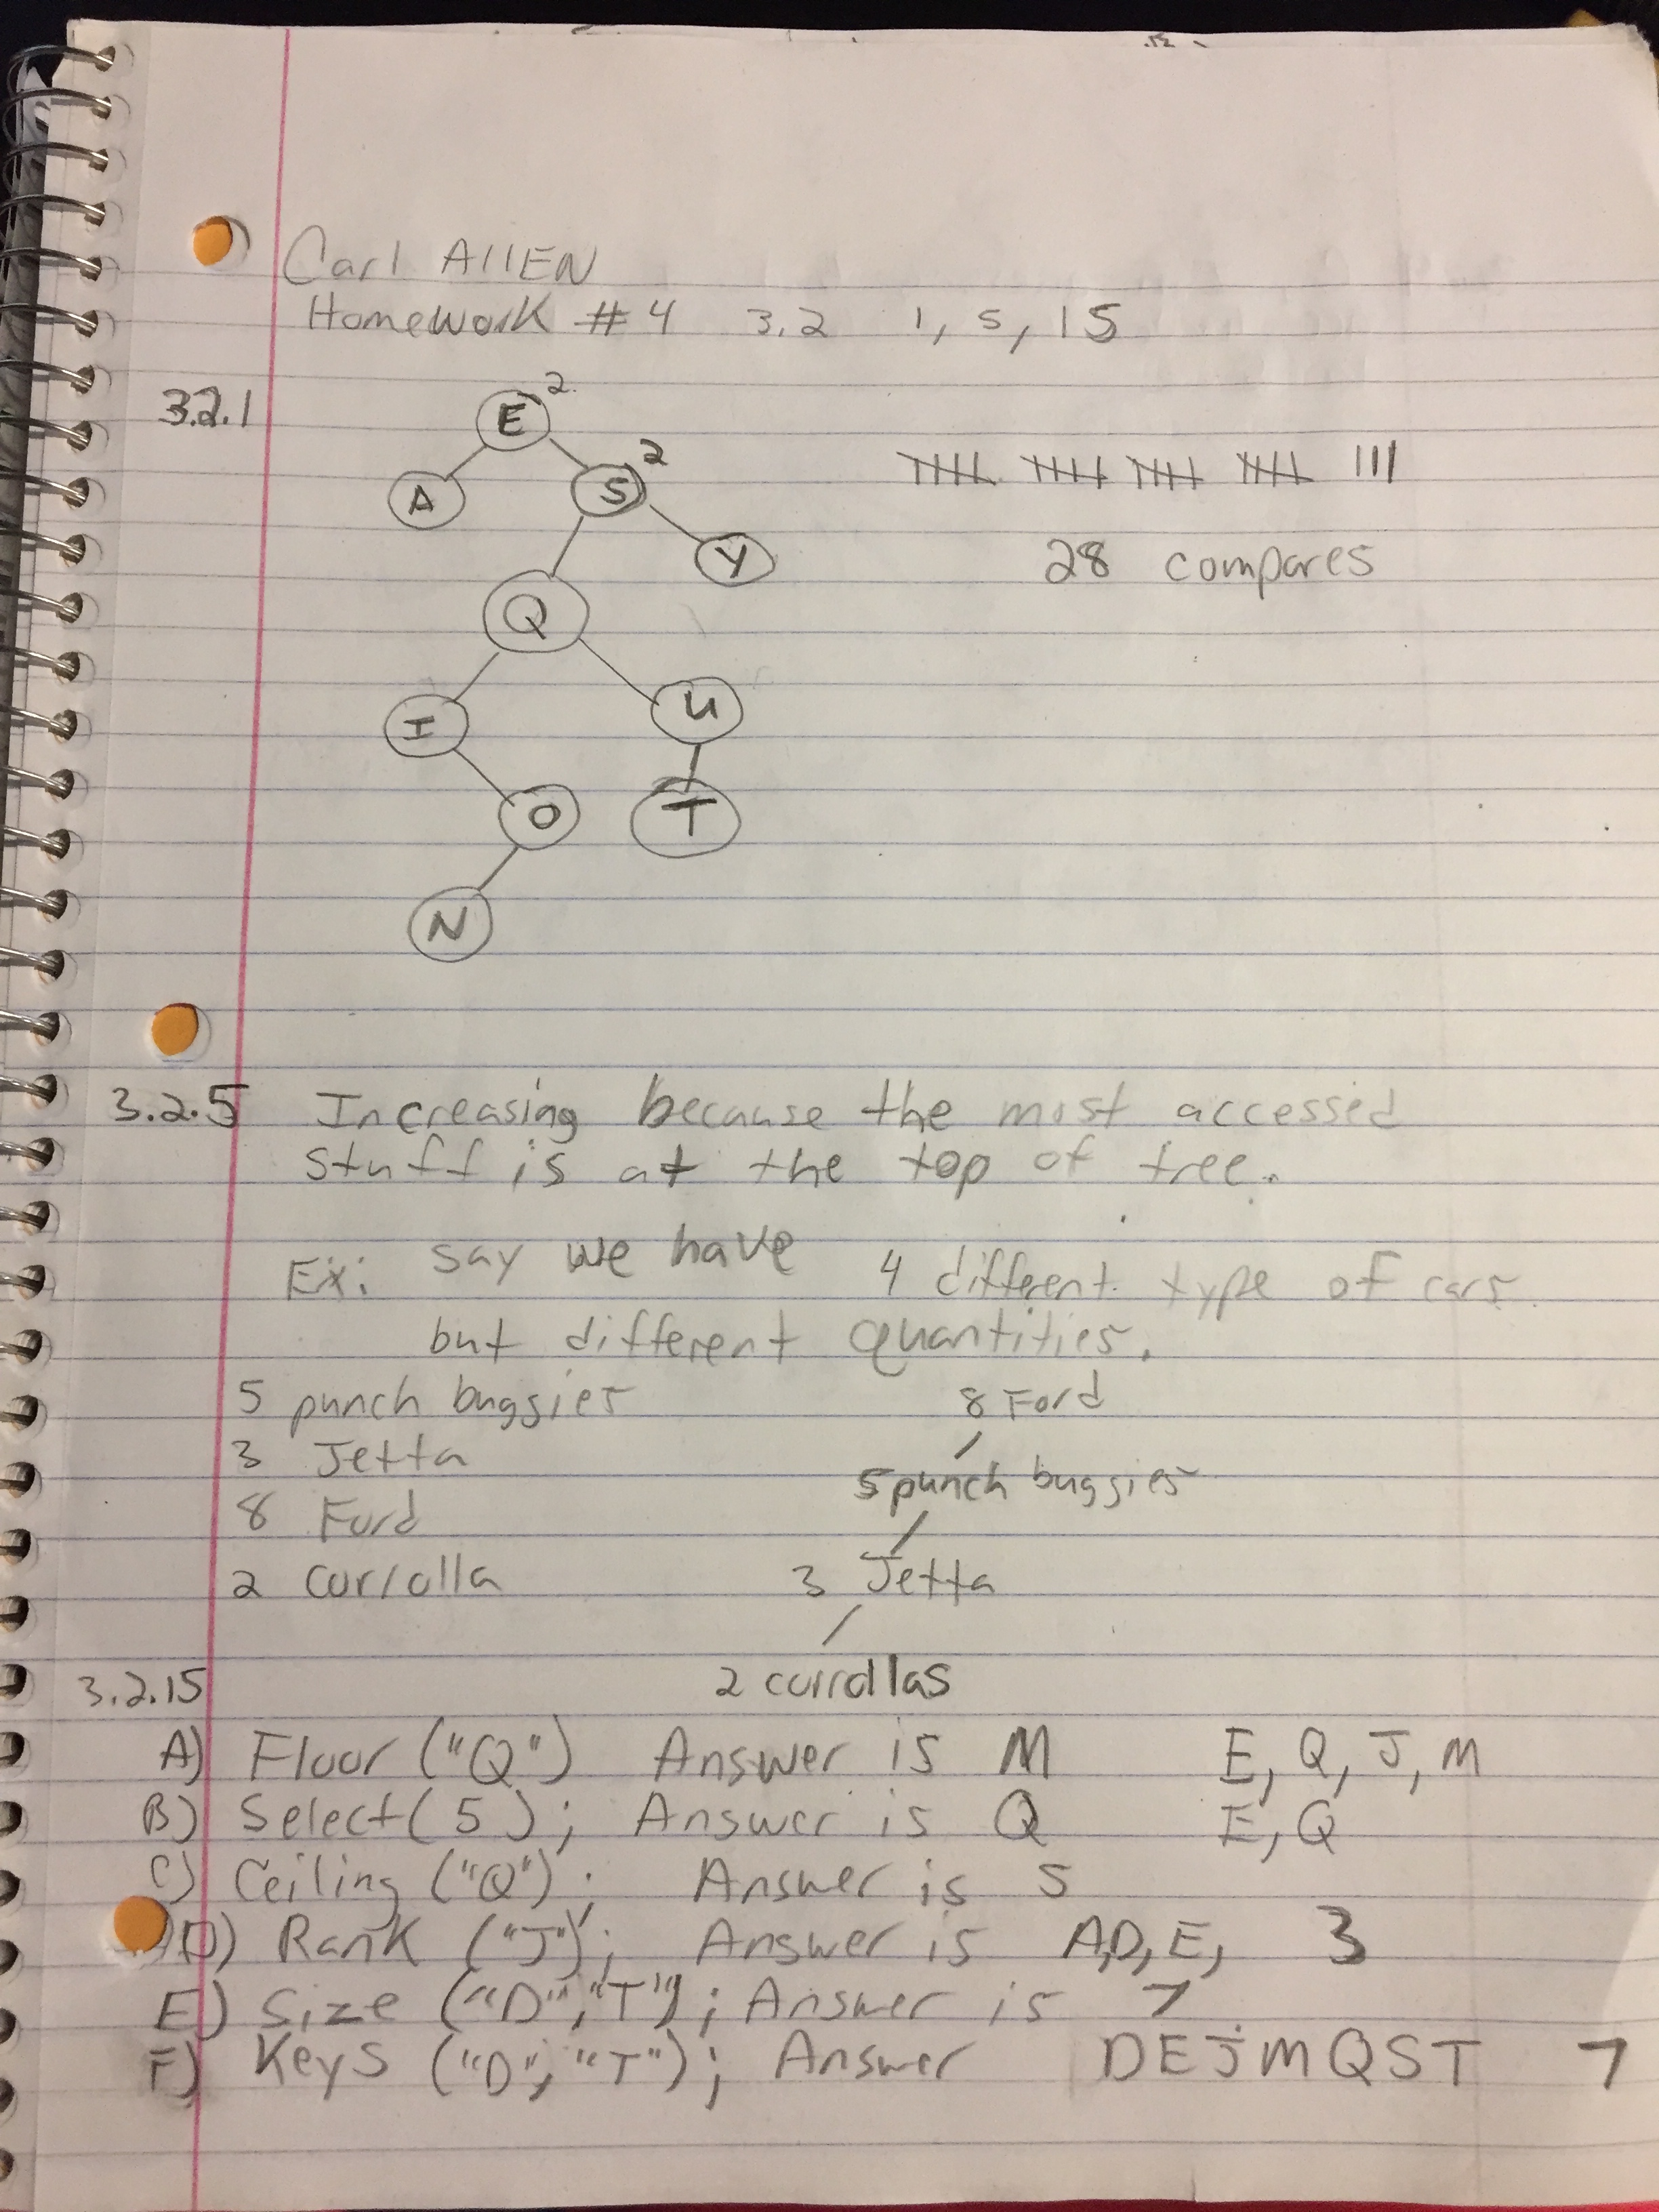 Carl AllEN
Homework #4 3.2 1, 5, 15
3.2.1
E 2
A S 2
Y
Q
I U
O T
N
28 compares
3.2.5 Increasing because the most accessed
stuff is at the top of tree.
Ex: say we have 4 different type of cars
but different quantities.
5 punch buggies 8 Ford
3 Jetta 5 punch buggies
8 Ford
2 corrolla 3 Jetta
3.2.15 2 corrollas
A) Floor ("Q") Answer is M E, Q, J, M
B) Select(5); Answer is Q E, Q
C) Ceiling ("Q"); Answer is S
D) Rank ("J"); Answer is A,D,E, 3
E) Size ("D","T"); Answer is 7
F) Keys ("D", "T"); Answer DEJMQST 7